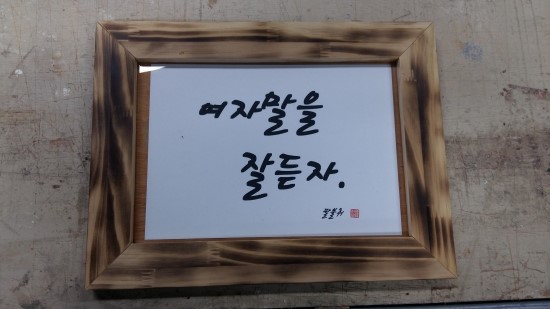 여자말을
잘듣자.